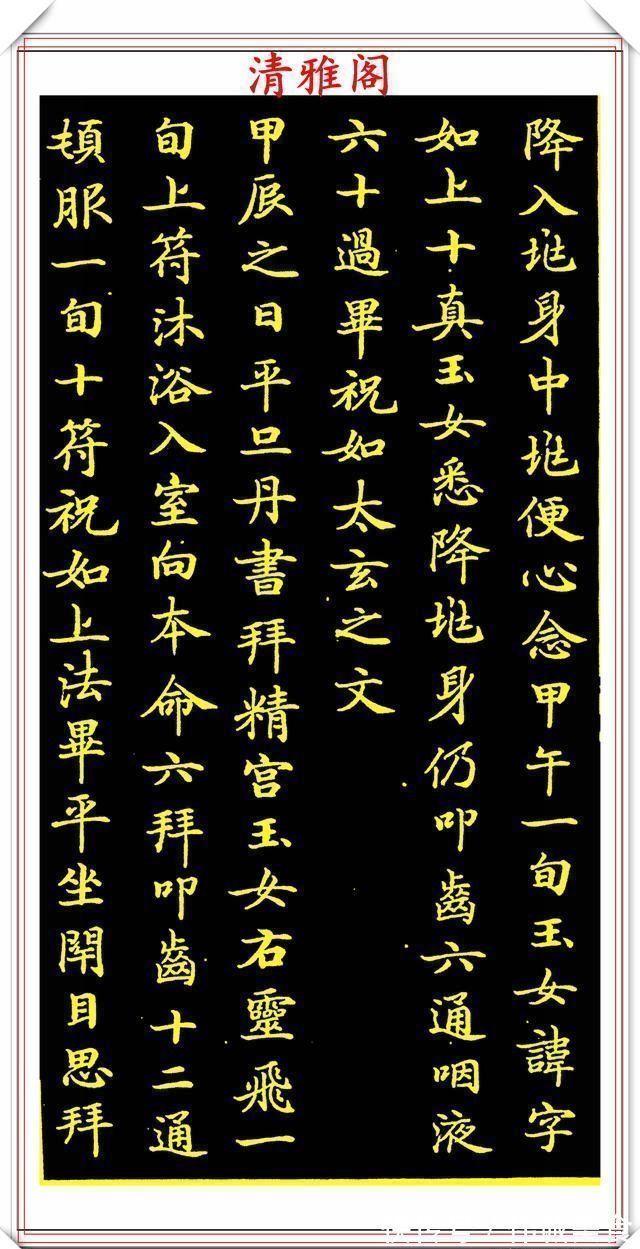 清雅阁
降入𡉏身中𡉏便心念甲午一旬玉女諱字
如上十真玉女悉降𡉏身仍叩齒六通咽液
六十過畢祝如太玄之文
甲辰之日平旦丹書拜精宫玉女右靈飛一
旬上符沐浴入室向本命六拜叩齒十二通
頓服一旬十符祝如上法畢平坐閉目思拜